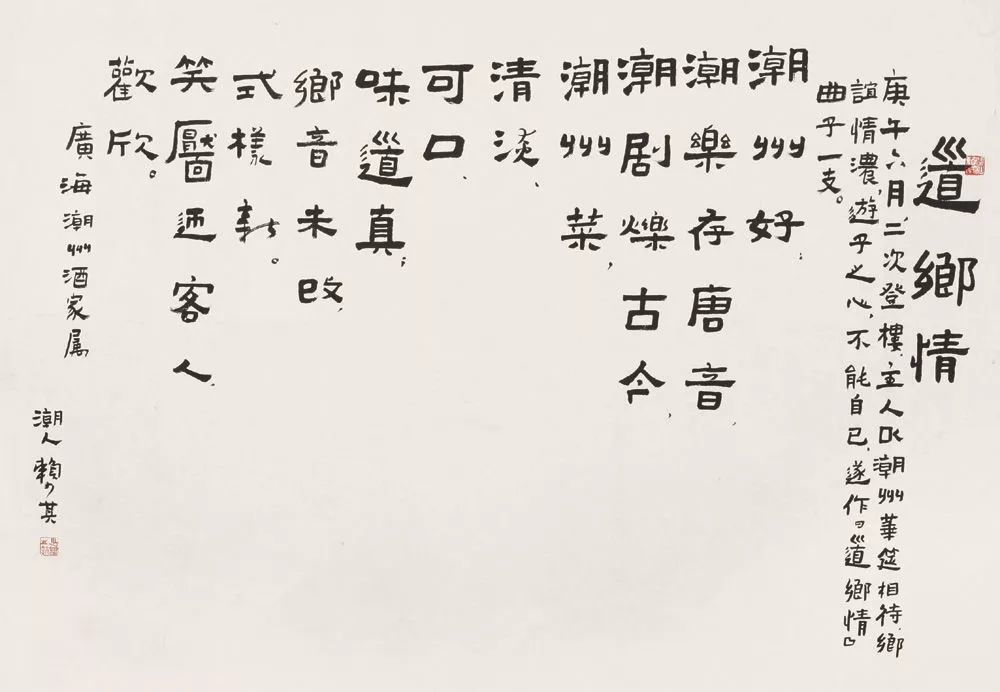 道鄉情
庚午六月,二次登樓,主人以潮州華筵相待,鄉
誼情濃,遊子之心,不能自已,遂作『道鄉情』
曲子一支。
潮州好;
潮樂存唐音,
潮剧爍古今,
潮州菜,
清淡、
可口、
味道真;
鄉音未改,
式樣新。
笑靨迎客人,
歡欣。
廣海潮州酒家属
潮人賴少其